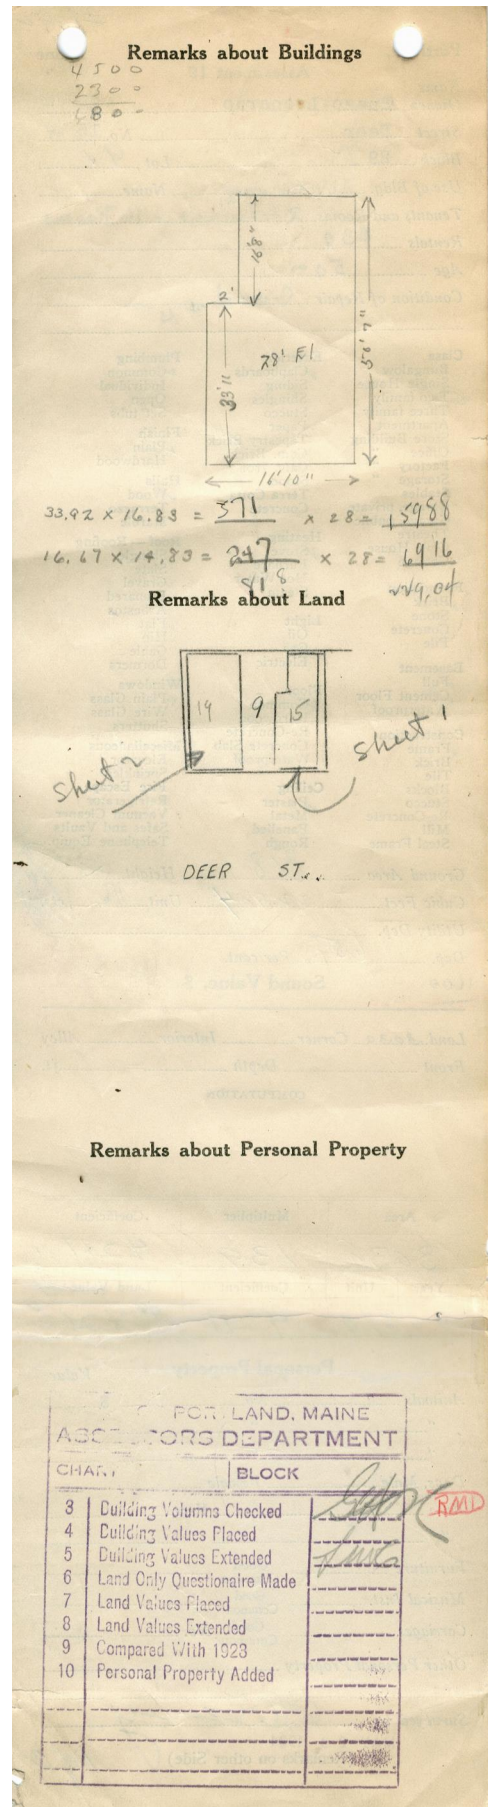 Remarks about Buildings
4500
2300
6800
16'8"
2'
33'11
28' El
50'7"
16'10"
33.92 x 16.83 = 571 x 28 = 15988
16.67 x 14.83 = 247 x 28 = 6916
818
229,04
Remarks about Land
19 9 15
Sheet 1
Sheet 2
DEER ST.
Remarks about Personal Property
PORTLAND, MAINE
ASSESSORS DEPARTMENT
CHART BLOCK
3 Building Volumns Checked
RMD
4 Building Values Placed
5 Building Values Extended
6 Land Only Questionaire Made
7 Land Values Placed
8 Land Values Extended
9 Compared With 1923
10 Personal Property Added